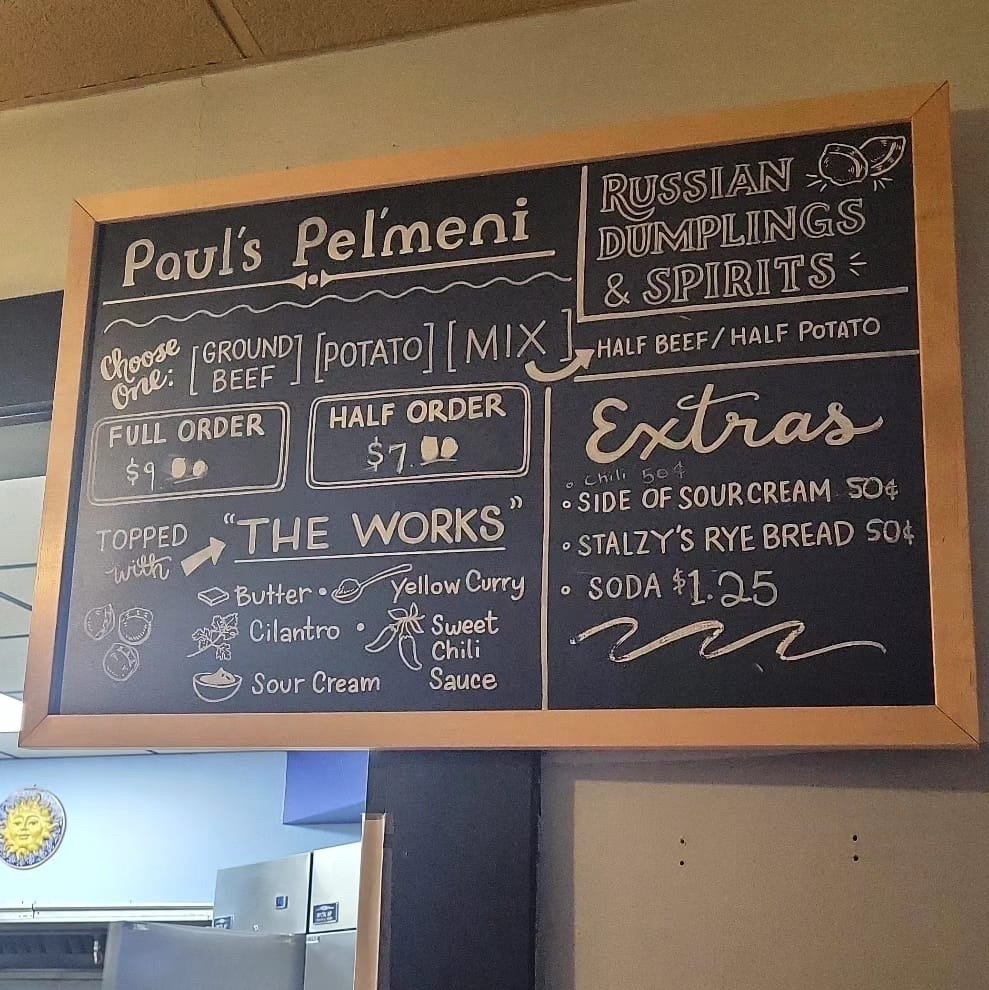 Paul's Pel'meni
RUSSIAN
DUMPLINGS
& SPIRITS
Choose
One:
[GROUND
BEEF]
[POTATO]
[MIX]
HALF BEEF/HALF POTATO
FULL ORDER
$9.00
HALF ORDER
$7.00
TOPPED
with
"THE WORKS"
Butter •
Yellow Curry
Cilantro •
Sweet
Chili
Sauce
Sour Cream
Extras
• Chili 50¢
• SIDE OF SOUR CREAM 50¢
• STALZY'S RYE BREAD 50¢
• SODA $1.25